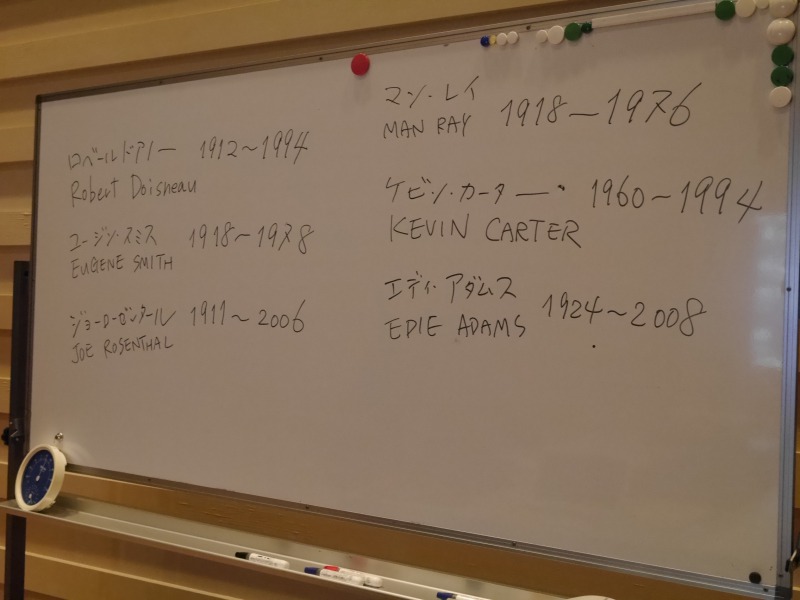 ロベールドアノー 1912〜1994
Robert Doisneau
ユージン・スミス 1918〜1978
EUGENE SMITH
ジョーローゼンタール 1911〜2006
JOE ROSENTHAL
マン・レイ 1918〜1976
MAN RAY
ケビン・カーター 1960〜1994
KEVIN CARTER
エディ・アダムス 1924〜2008
EDIE ADAMS